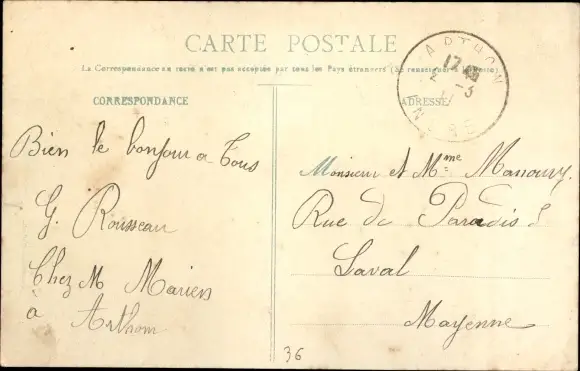 CARTE POSTALE
La Correspondance au recto n'est pas acceptée par tous les Pays étrangers (Se renseigner à la Poste)
CORRESPONDANCE
ADRESSE
ARTHON
17
2 - 3
INDRE
Bien le bonjour a Tous
G. Rousseau
Chez M Marien
à Arthon
Monsieur et Mme Manoury.
Rue de Paradis 5
Laval
Mayenne
36